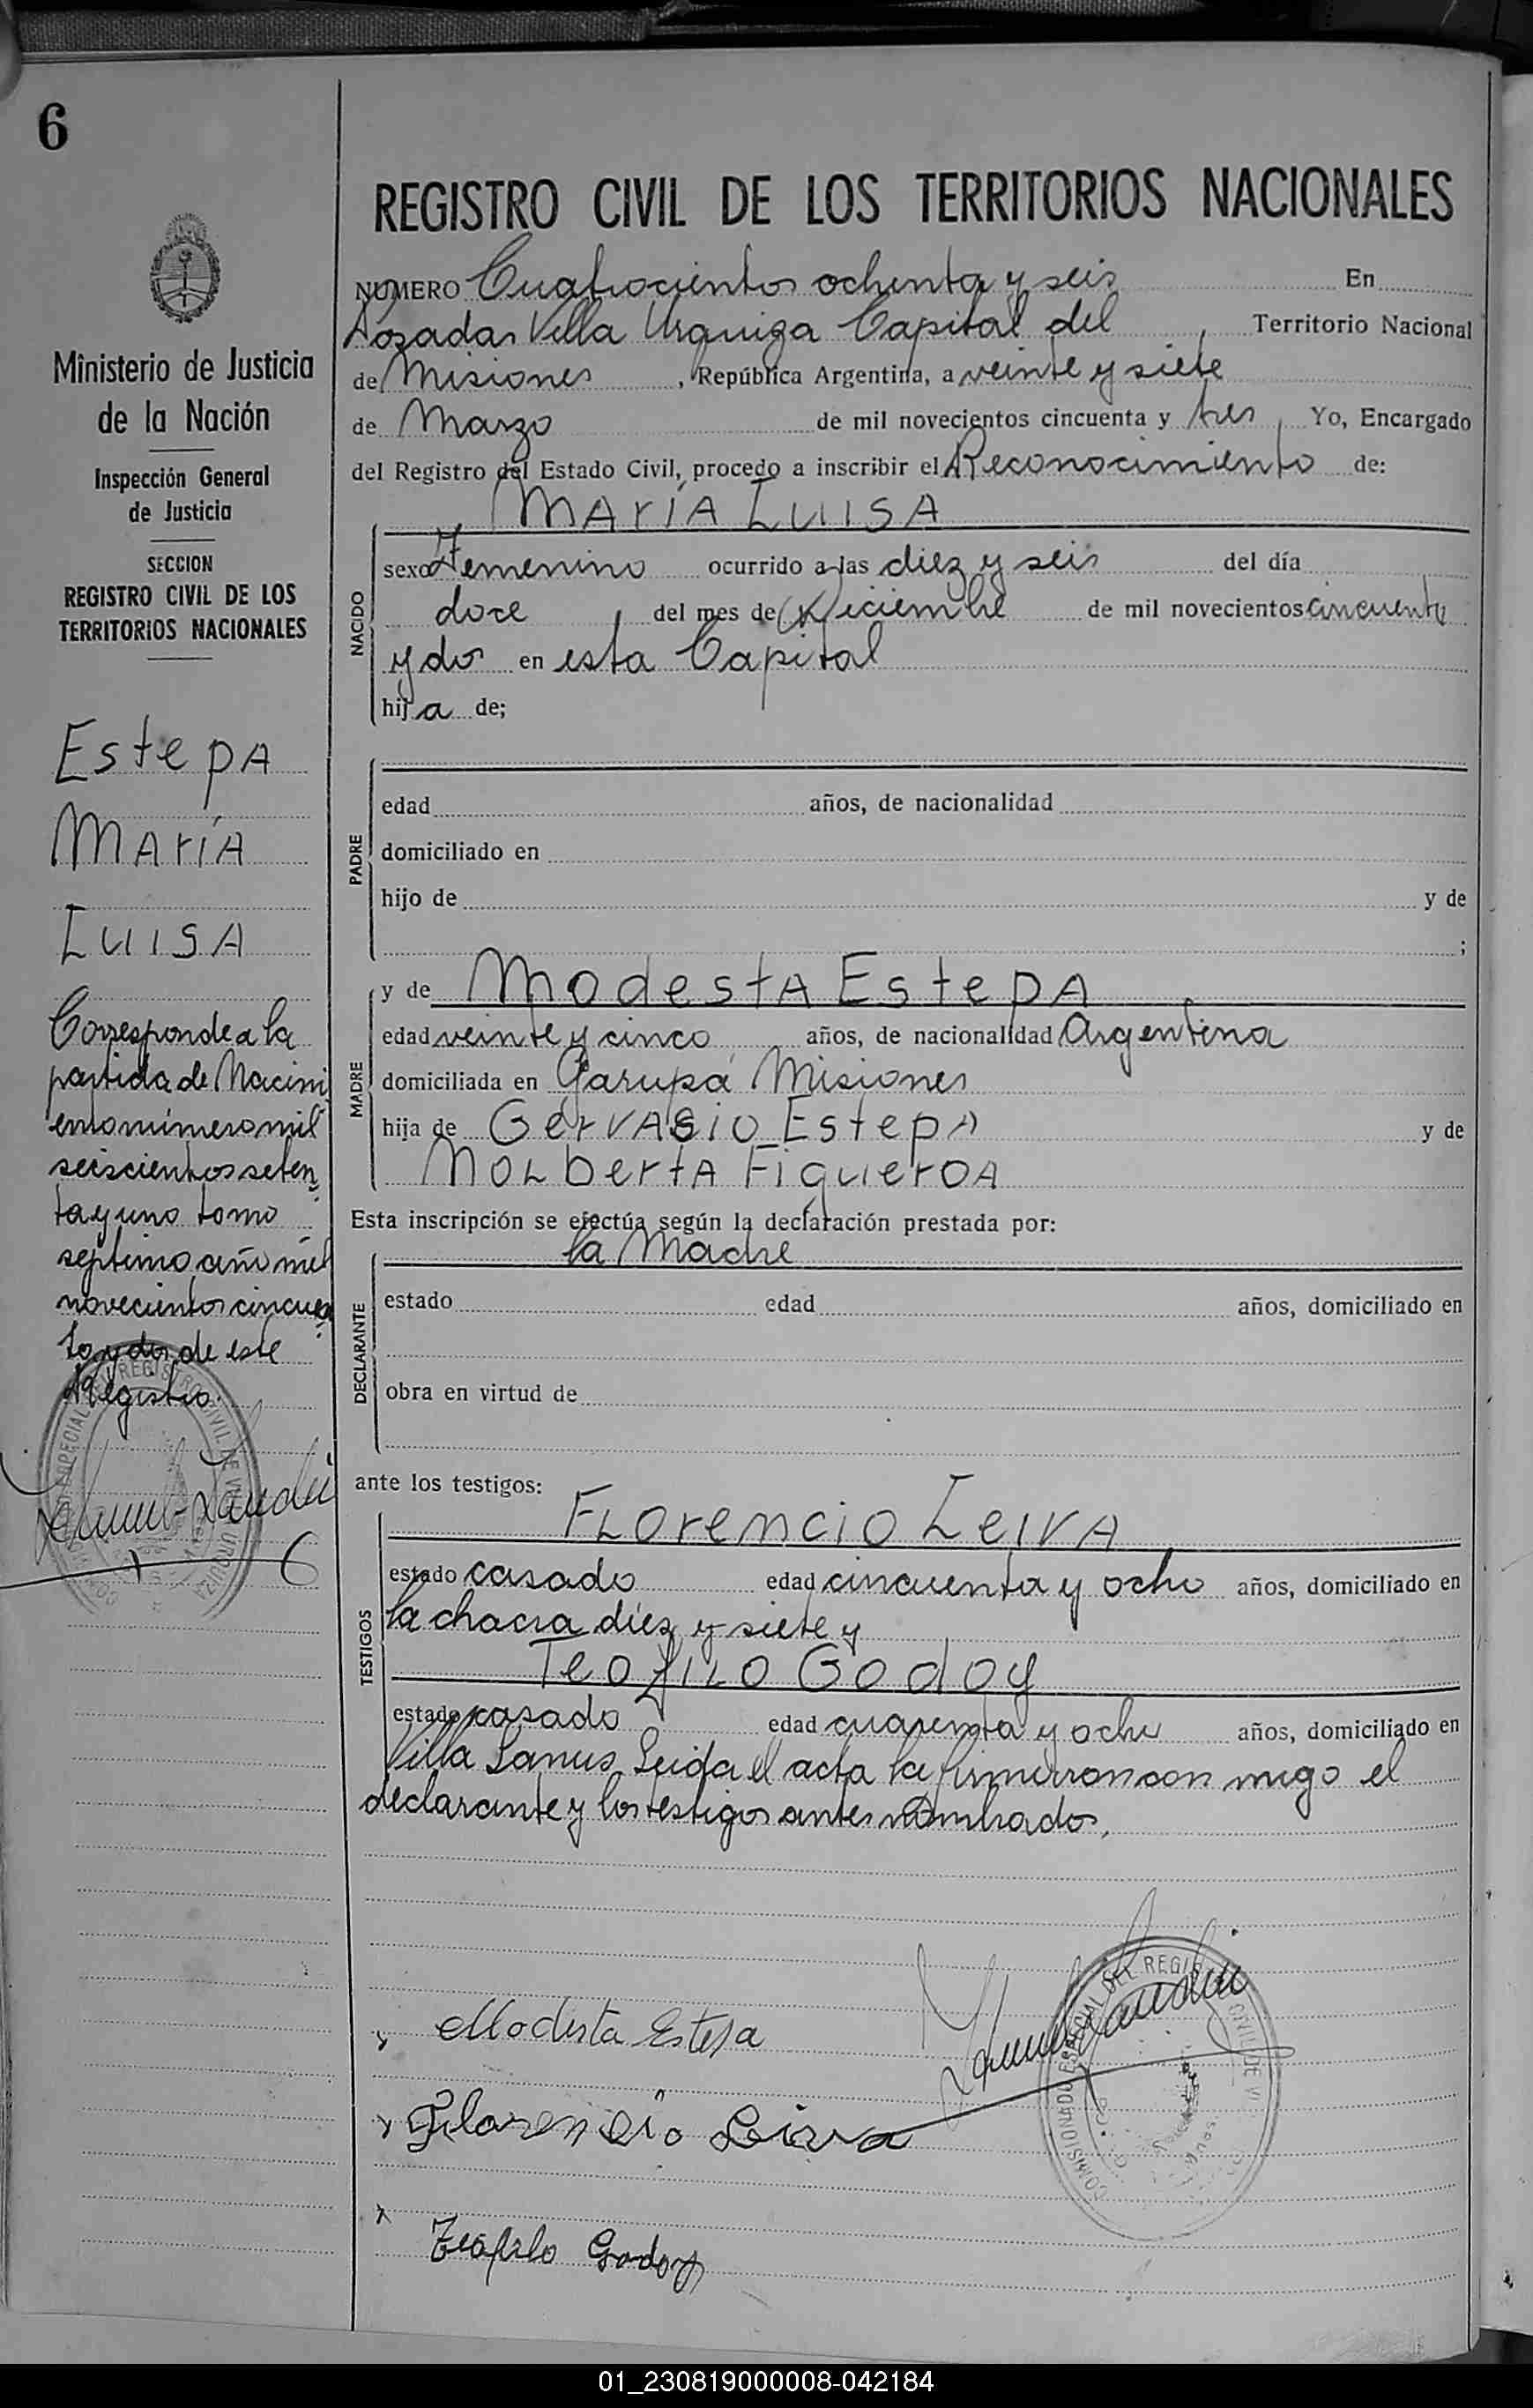 6
Ministerio de Justicia
de la Nación
Inspección General
de Justicia
SECCION
REGISTRO CIVIL DE LOS
TERRITORIOS NACIONALES
Estepa
María
Luisa
Corresponde a la
partida de Nacimi
ento número mil
seiscientos seten
ta y uno tomo
septimo, año mil
novecientos cincuen
ta y dos de este
Registro.
REGISTRO CIVIL DE LOS TERRITORIOS NACIONALES
NUMERO Cuatrocientos ochenta y seis En
Posadas Villa Urquiza Capital del, Territorio Nacional
de Misiones, República Argentina, a veinte y siete
de Marzo de mil novecientos cincuenta y tres Yo, Encargado
del Registro del Estado Civil, procedo a inscribir el Reconocimiento de:
María Luisa
NACIDO
sexo Femenino ocurrido a las diez y seis del día
doce del mes de Diciembre de mil novecientos cincuenta
y dos en esta Capital
hija de;
PADRE
edad años, de nacionalidad
domiciliado en
hijo de y de
;
MADRE
y de Modesta Estepa
edad veinte y cinco años, de nacionalidad Argentina
domiciliada en Garupá Misiones
hija de Gervasio Estepa y de
Norberta Figueroa
Esta inscripción se efectúa según la declaración prestada por:
la Madre
DECLARANTE
estado edad años, domiciliado en
obra en virtud de
ante los testigos:
TESTIGOS
Florencio Leiva
estado casado edad cincuenta y ocho años, domiciliado en
la chacra diez y siete y
Teofilo Godoy
estado casado edad cuarenta y ocho años, domiciliado en
Villa Lanus. Leida el acta la firmarron con migo el
declarante y los testigos antes nombrados.
Modesta Estepa
Florencio Leiva
Teofilo Godoy
01_230819000008-042184